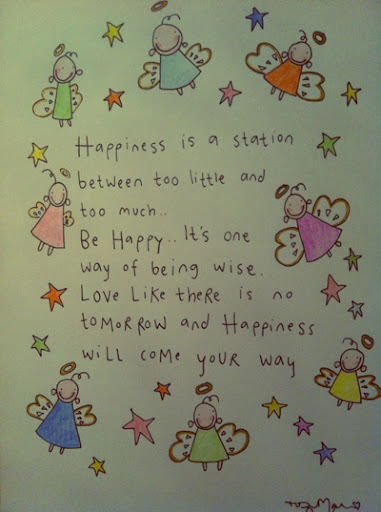 Happiness is a station
between too little and
too much..
Be Happy.. It's one
way of being wise.
Love Like there is no
tomorrow and Happiness
will come your way